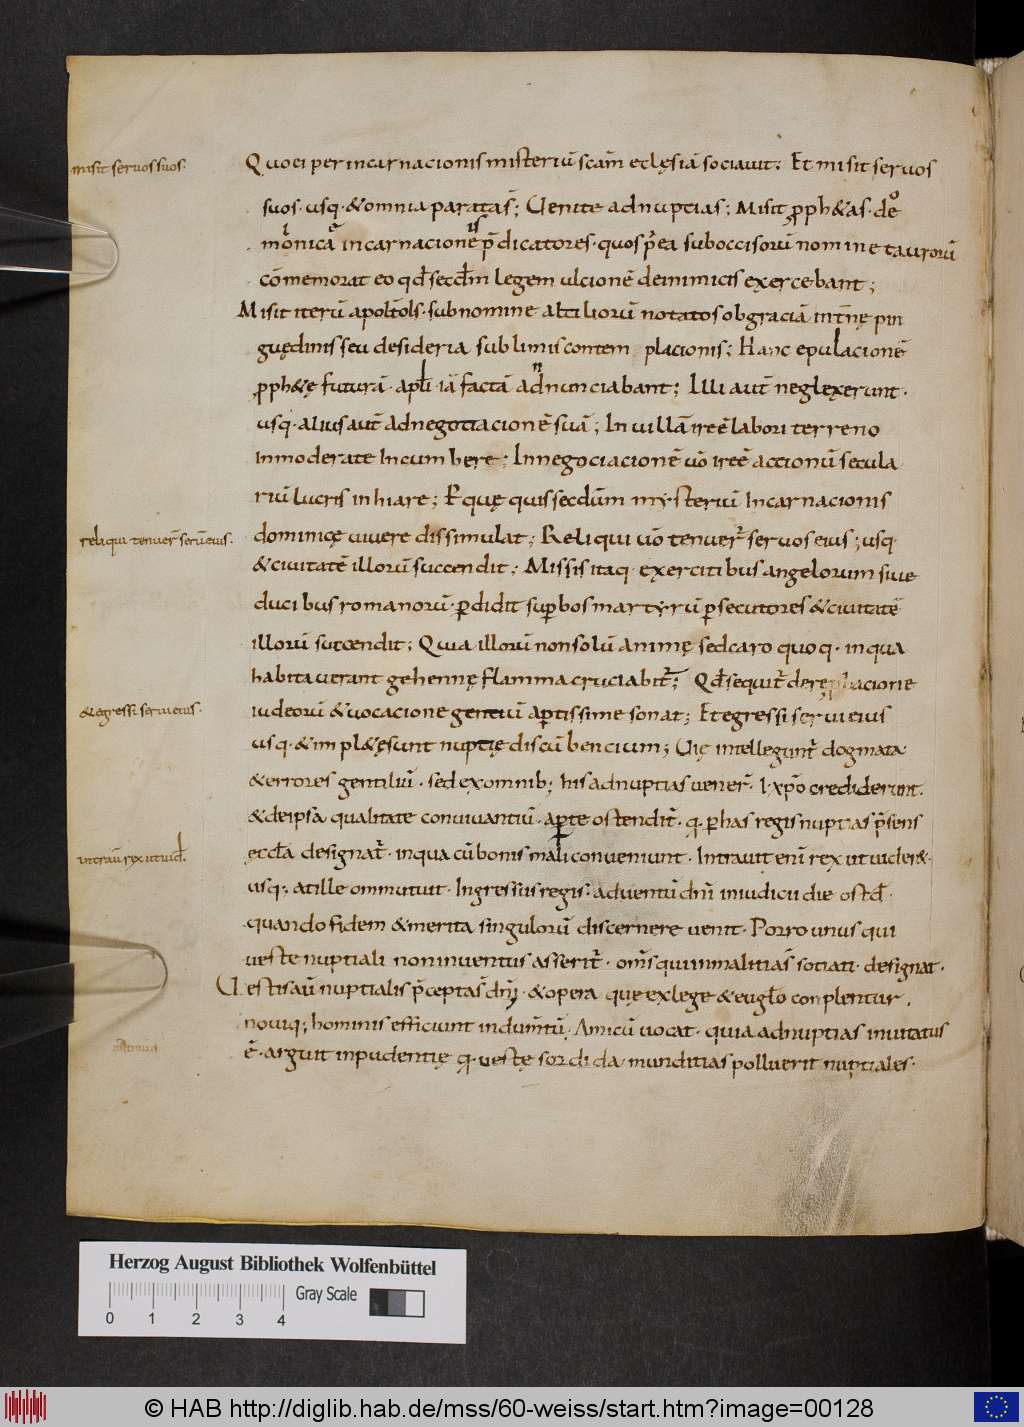 misit seruos suos.
Quoei per incarnacionis misteriū scām eclęsiā sociauit; Et misit seruos
suos. usq. & omnia parata s̄; Uenite ad nuptias; Misit ꝓph&as. de
incarnacione p̄dicatores. quos p̄ea sub occisorū nomine taurorū
cōmemorat eo qđ secđm legem ulcionē de inimicis exercebant;
Misit iterū apostolos. sub nomine altiliorū notatos ob graciā int̄nę pin
guędinis seu desideria sublimis contemplacionis; Hanc epulacionē
ꝓph&ę futurā. apłi iā factā adnunciabant; Illi aut̄ neglexerunt.
usq. alius aut̄ ad negotiacionē suā; In uillā ire ē labori terreno
inmoderate Incumbere; In negociacionē uō ire ē accionū secula
riū lucris inhiare; Eque quis secdūm mysteriū Incarnacionis
reliqui tenuer̄ seruō eius.
dominicę uiuere dissimulat; Reliqui uō tenuer̄ seruos eius; usq.
& ciuitatē illorū succendit; Missis itaq. exercitibus angelorum siue
ducibus romanorū. ꝑdidit suꝑbos martyrū ꝑsecutores & ciuitatē
illorū succendit; Quia illorū non solū animę sed caro quoq. in qua
habitauerant gehennę flamma cruciabit̄; Qđ sequit̄ de replacione
& egressi serui eius.
iudeorū & uocacione gentiū aꝑtissime sonat; Et egressi serui eius
usq. & impl&ę sunt nuptię discūbencium; Uię intellegunt̄ dogmata
& errores gentiliū. sed ex omnib; his ad nuptias uener̄. I. xp̄o crediderunt.
& de ipsa qualitate conuiuantiū. aꝑte ostendit̄. q. ꝑ has regis nuptias p̄sens
intrau̅ rex ut uiđ.
ęccła designat̄. in qua cū bonis mali conueniunt. Intrauit eni rex ut uider&.
usq; at ille ommutuit. Ingressus regis. aduentū dn̄i in iudicii die ostđ.
quando fidem & merita singulorū discernere uenit. Porro unus qui
ueste nuptiali non inuentus asserit̄. om̄s qui in malitias sociati. designat.
Uestis aū nuptialis p̄cepta s̄ dn̄i. & opera quę ex lege & eugło conplentur.
nouiq; hominis efficiunt indumt̄ū. Amicū uocat. quia ad nuptias inuitatus
ē. arguit inpudentię q. ueste sordida munditias polluerit nuptiales.
Herzog August Bibliothek Wolfenbüttel
Gray Scale
0 1 2 3 4
© HAB http://diglib.hab.de/mss/60-weiss/start.htm?image=00128